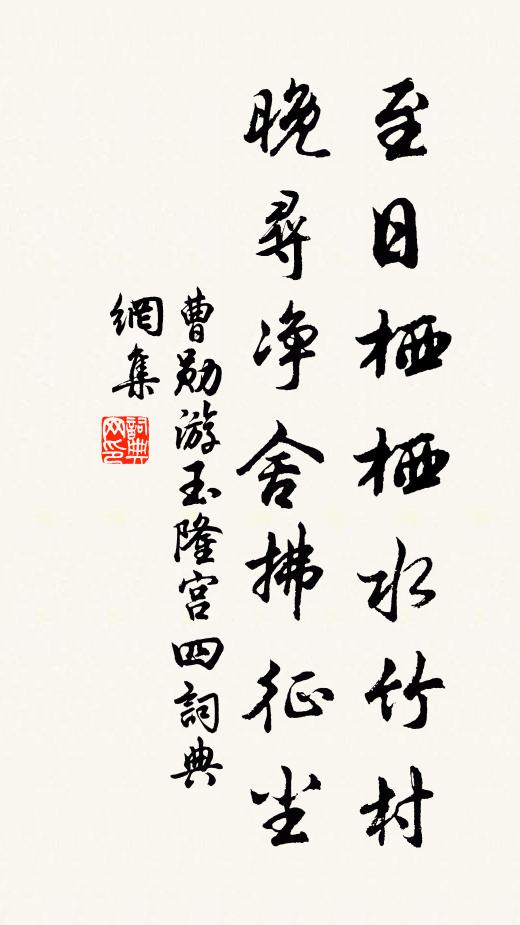 至日栖栖水竹村
晚尋净舍拂征尘
曹勋游玉隆宫四詞典
網集
詞典
网印